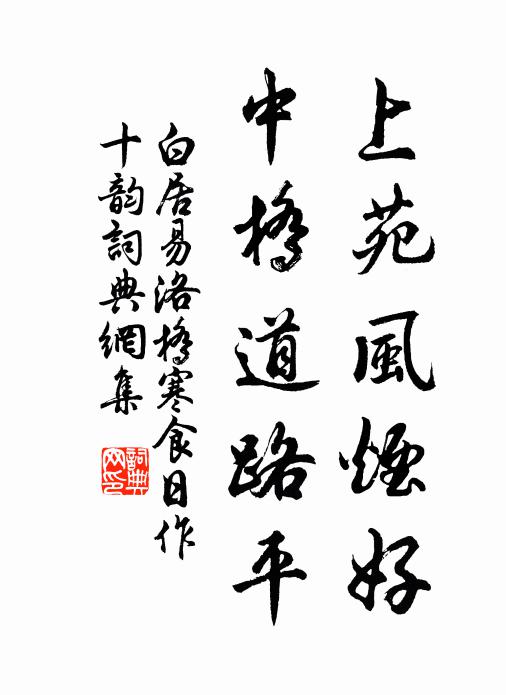 上苑風煙好
中橋道路平
白居易洛橋寒食日作
十韵詞典網集
詞典网印